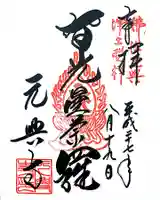 奉拝
平成二十七年
八月十九日
智光曼荼羅
元興寺